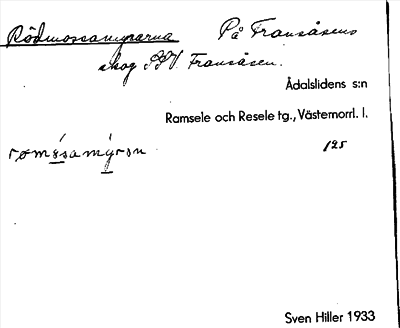 Rödmossamyrarna På Fransåsens
skog SSV. Fransåsen.
Ådalslidens s:n
Ramsele och Resele tg., Västernorrl. l.
romsamyron 125
Sven Hiller 1933